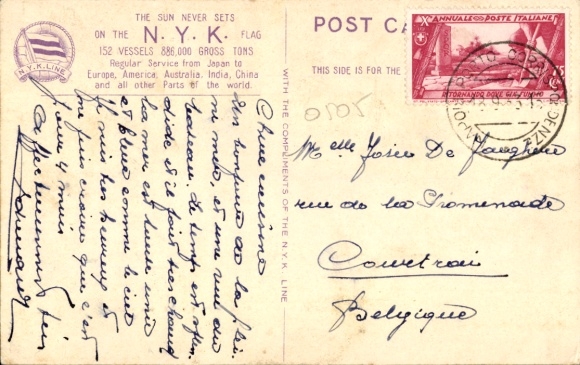 THE SUN NEVER SETS
ON THE N.Y.K. FLAG
152 VESSELS 886,000 GROSS TONS
Regular Service from Japan to
Europe, America, Australia, India, China
and all other Parts of the world.
N.Y.K. LINE
POST CA
THIS SIDE IS FOR THE
WITH THE COMPLIMENTS OF THE N.Y.K. LINE
X ANNUALE POSTE ITALIANE
RITORNANDO DOVE GIÀ FUMMO
NAPOLI
0105
Melle Josée De Jaeghere
rue de la Promenade
Courtrai
Belgique
Chère cousine
bonjour de la
et une vue du
bateau. Le temps est
dide et il fait très chaud
la mer est toute unie
et bleue comme le ciel
Je suis très heureux et
ne puis croire que c'est
pour 4 mois
Affectueusement